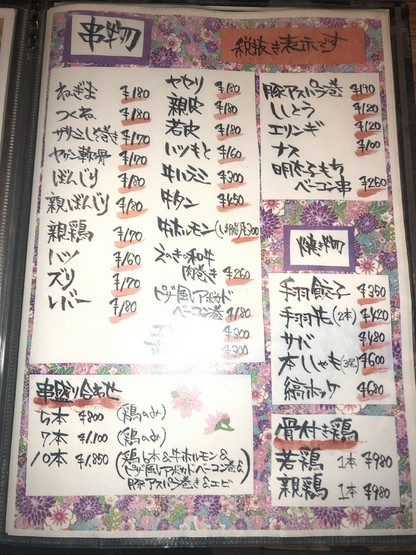 串物
税抜き表示です
ねぎま ¥180
つくね ¥180
ササミしそ巻き ¥170
ヤゲン軟骨 ¥170
ぼんじり ¥180
親ぼんじり ¥180
親鶏 ¥170
ハツ ¥160
ズリ ¥170
レバー ¥180
ヤゲン ¥180
親皮 ¥180
若皮 ¥180
ハツもと ¥160
牛ハラミ ¥300
牛タン ¥450
牛ホルモン
えのき和牛
肉巻き ¥260
ピザ風アボカド
ベーコン巻 ¥180
¥300
¥300
豚アスパラ巻 ¥170
ししとう ¥120
エリンギ ¥120
ナス ¥100
明太子もち
ベーコン串 ¥250
焼物
手羽餃子 ¥350
手羽先(2本) ¥420
サバ ¥480
本ししゃも(3尾) ¥600
縞ホッケ ¥680
骨付き鶏
若鶏 1本 ¥980
親鶏 1本 ¥980
串盛り合わせ
5本 ¥800 (鶏のみ)
7本 ¥1,100 (鶏のみ)
10本 ¥1,850 (鶏6本&牛ホルモン&
ピザ風アボカドベーコン巻&
豚アスパラ巻き&エビ)